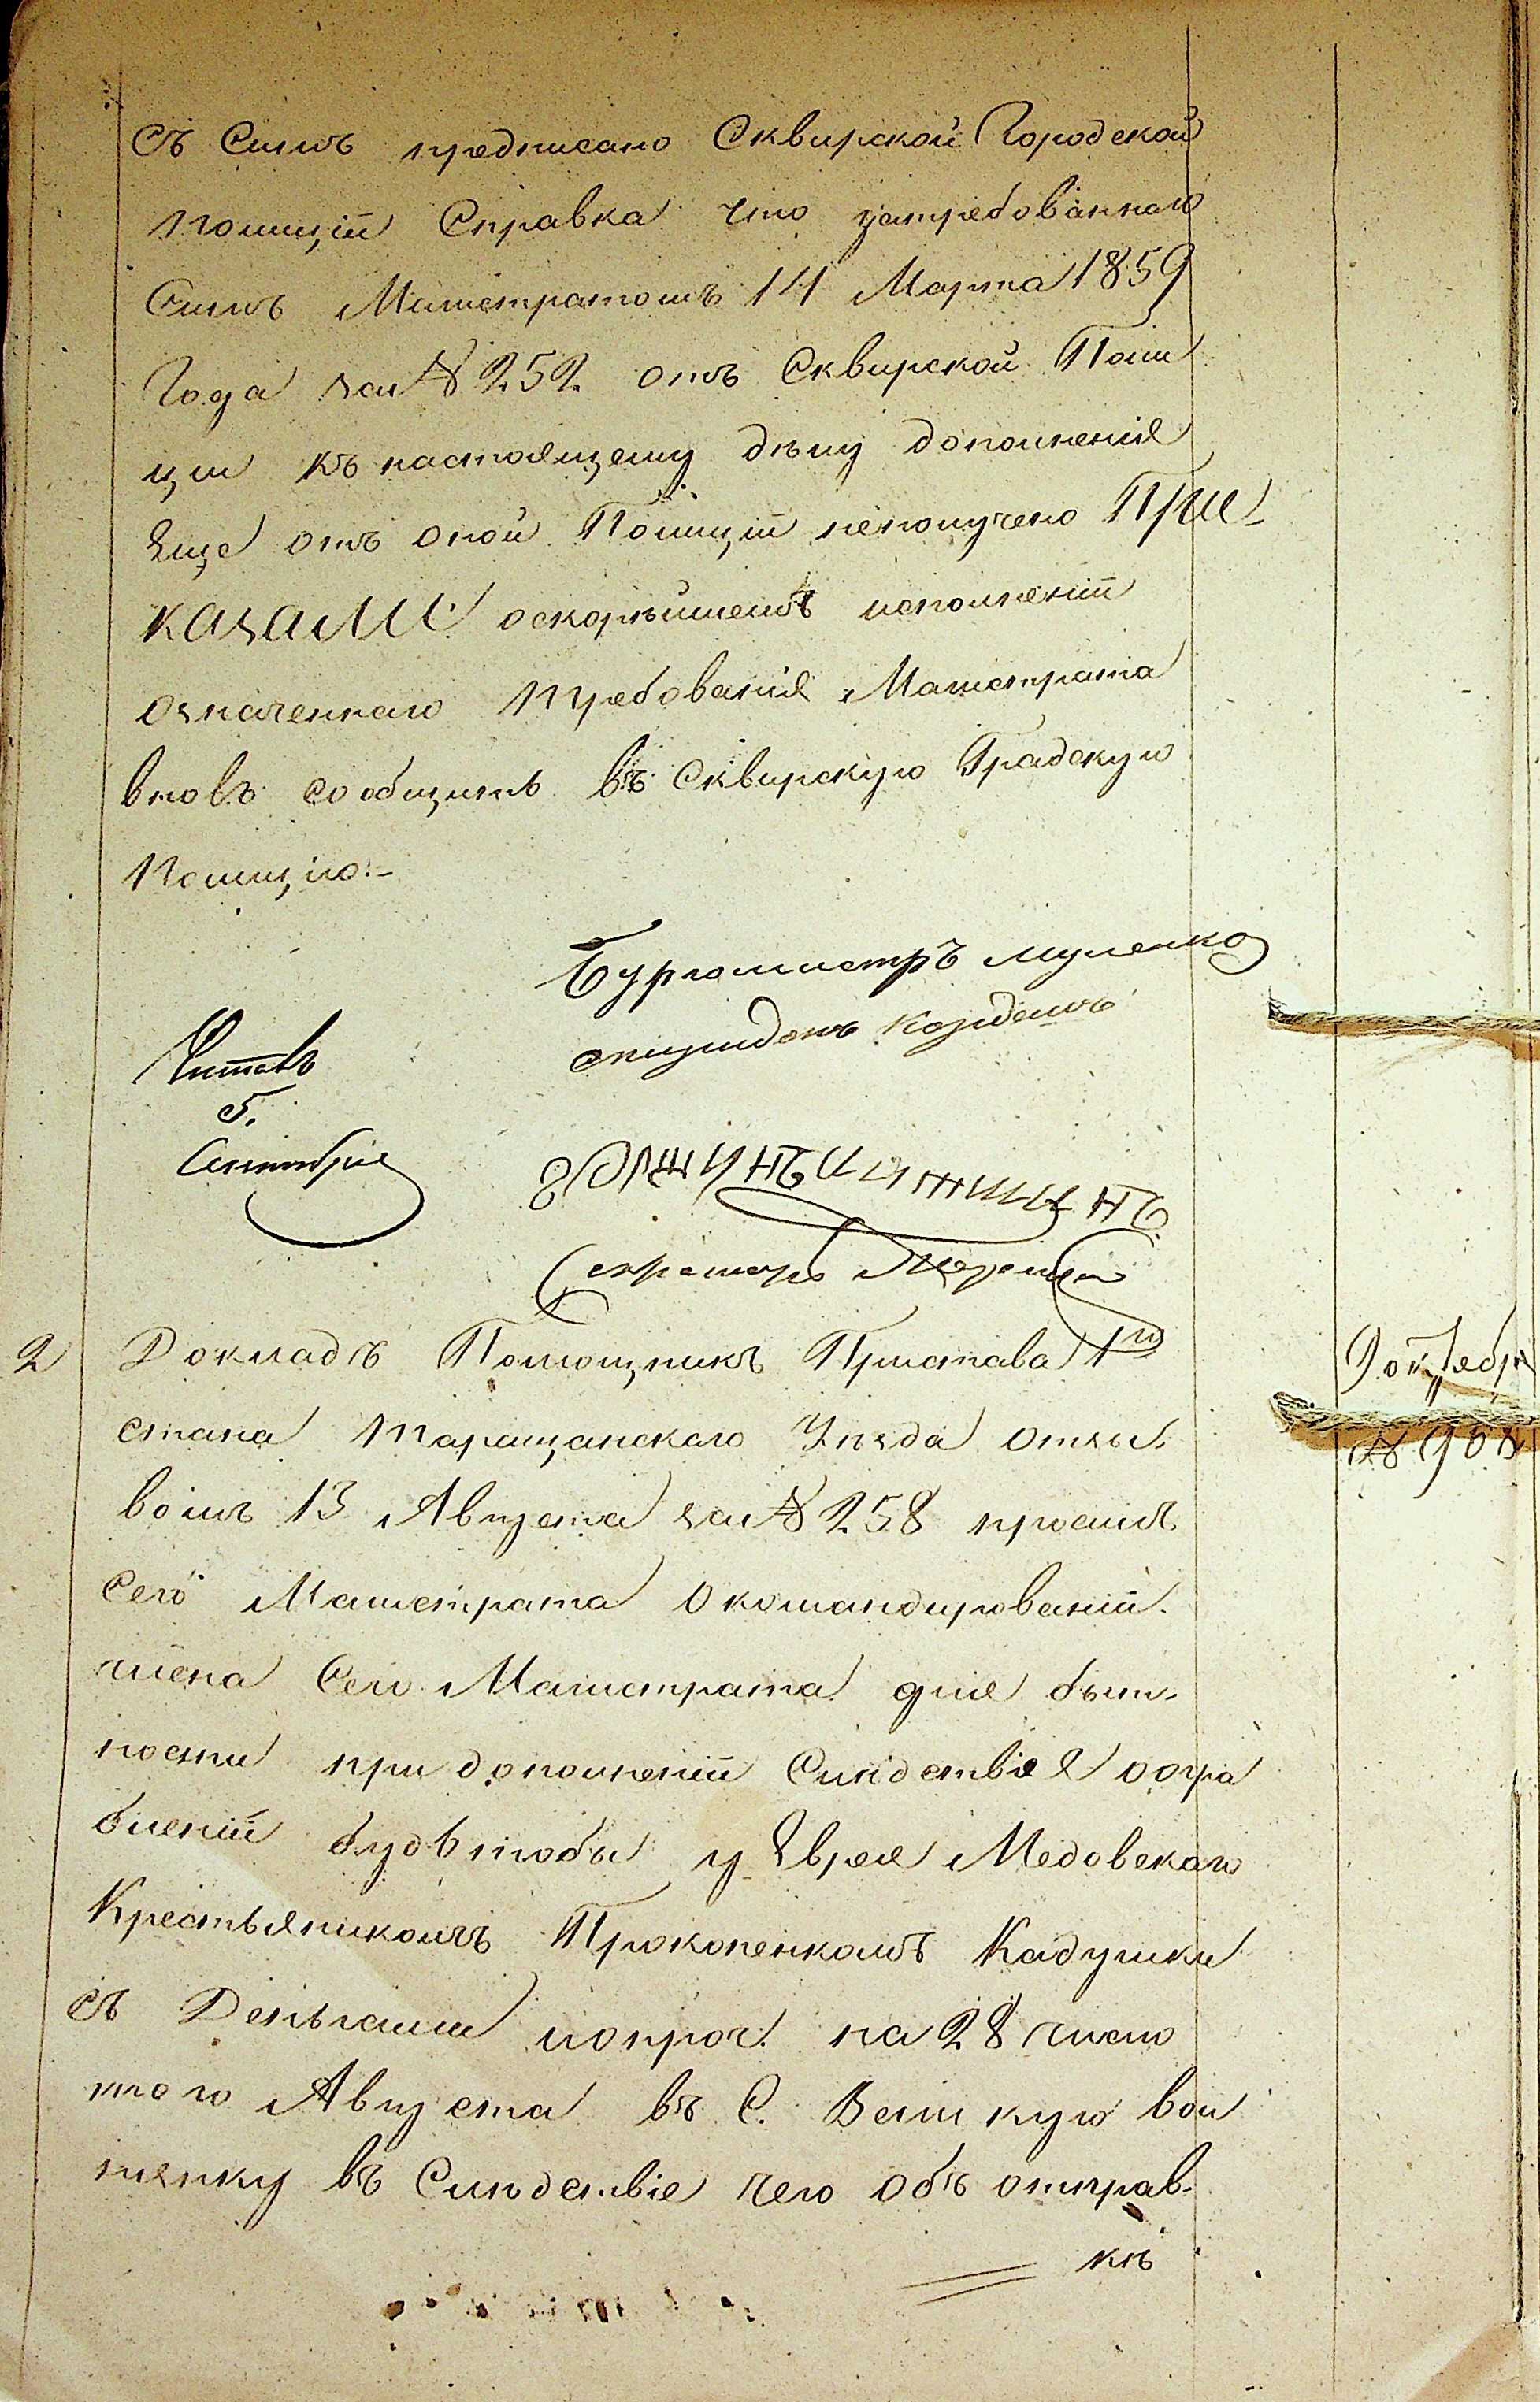 съ симъ предписано Сквирской Городской
полиціи Справка что затребованнаго
Симъ Магистратомъ 14 Марта 1859
Года за № 252 отъ Сквирской Поли
ціи къ настоящему дѣлу дополненія
Еще отъ оной Полиціи неполучено При-
казали оскорѣйшемъ исполненіи
означеннаго требованія Магистрата
вновь сообщить въ Сквирскую Градскую
Полицію:-
Бургомистръ
Читалъ
5.
Сентября
Секретарь
2 Докладъ Помощникъ Пристава 1го
стана Таращанскаго Уѣзда отзы-
вомъ 13 Августа за № 258 проситъ
Сего Магистрата о командированіи
члена Сего Магистрата для быт-
ности при дополненіи Слѣдствія оогра
бленіи будьтобы у Еврея Медовскаго
Крестьяниномъ Прокопенкомъ Кадушки
съ Деньгами ипроч. на 28 число
того Августа въ С. Великую вов
нянку въ Слѣдствіе чего объ отправ-
кѣ